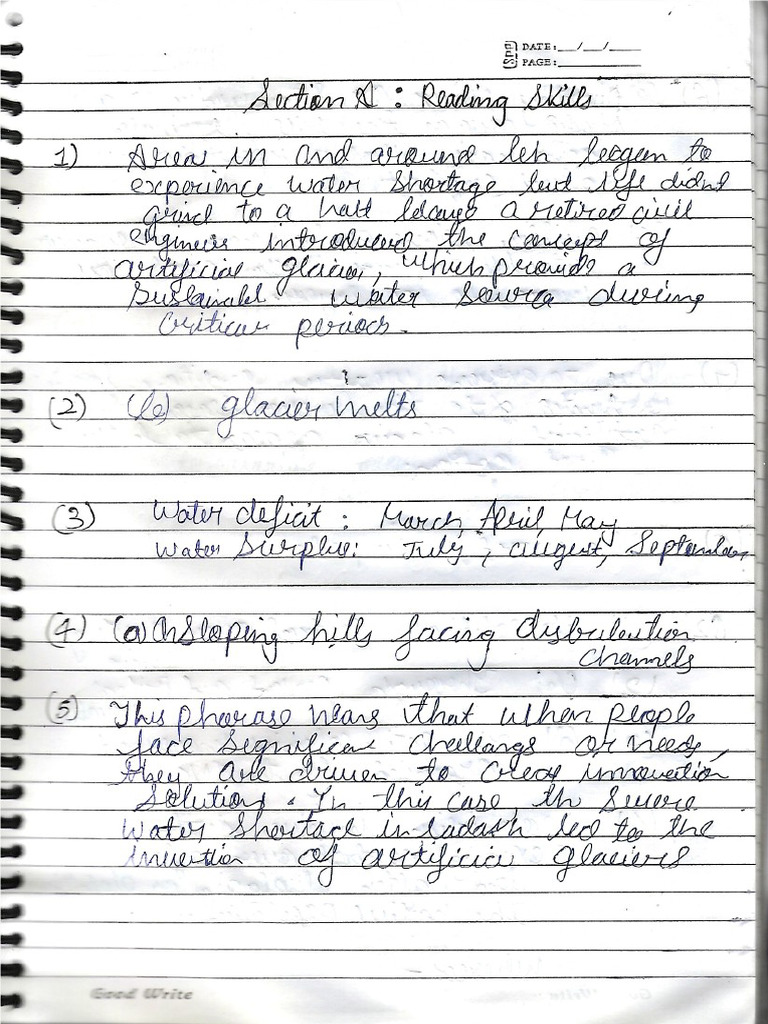 DATE: __/__/__
PAGE: ______
Section A : Reading Skills
1) Areas in and around leh began to
experience water shortage but life didn't
grind to a halt because a retired civil
engineer introduced the concept of
artificial glacier, which provide a
Sustainabl water source during
critical periods.
(2) (b) glacier melts
(3) Water deficit : March, April, May
Water Surplus: July, august, September
(4) (a) On sloping hills facing distribution
channels
(5) This pharase means that when people
face significant challangs or needs,
they are driven to creat innovation
Solutions. In this case, th severe
Water Shortage in ladakh led to the
invention of artificial glaciers
Good Write